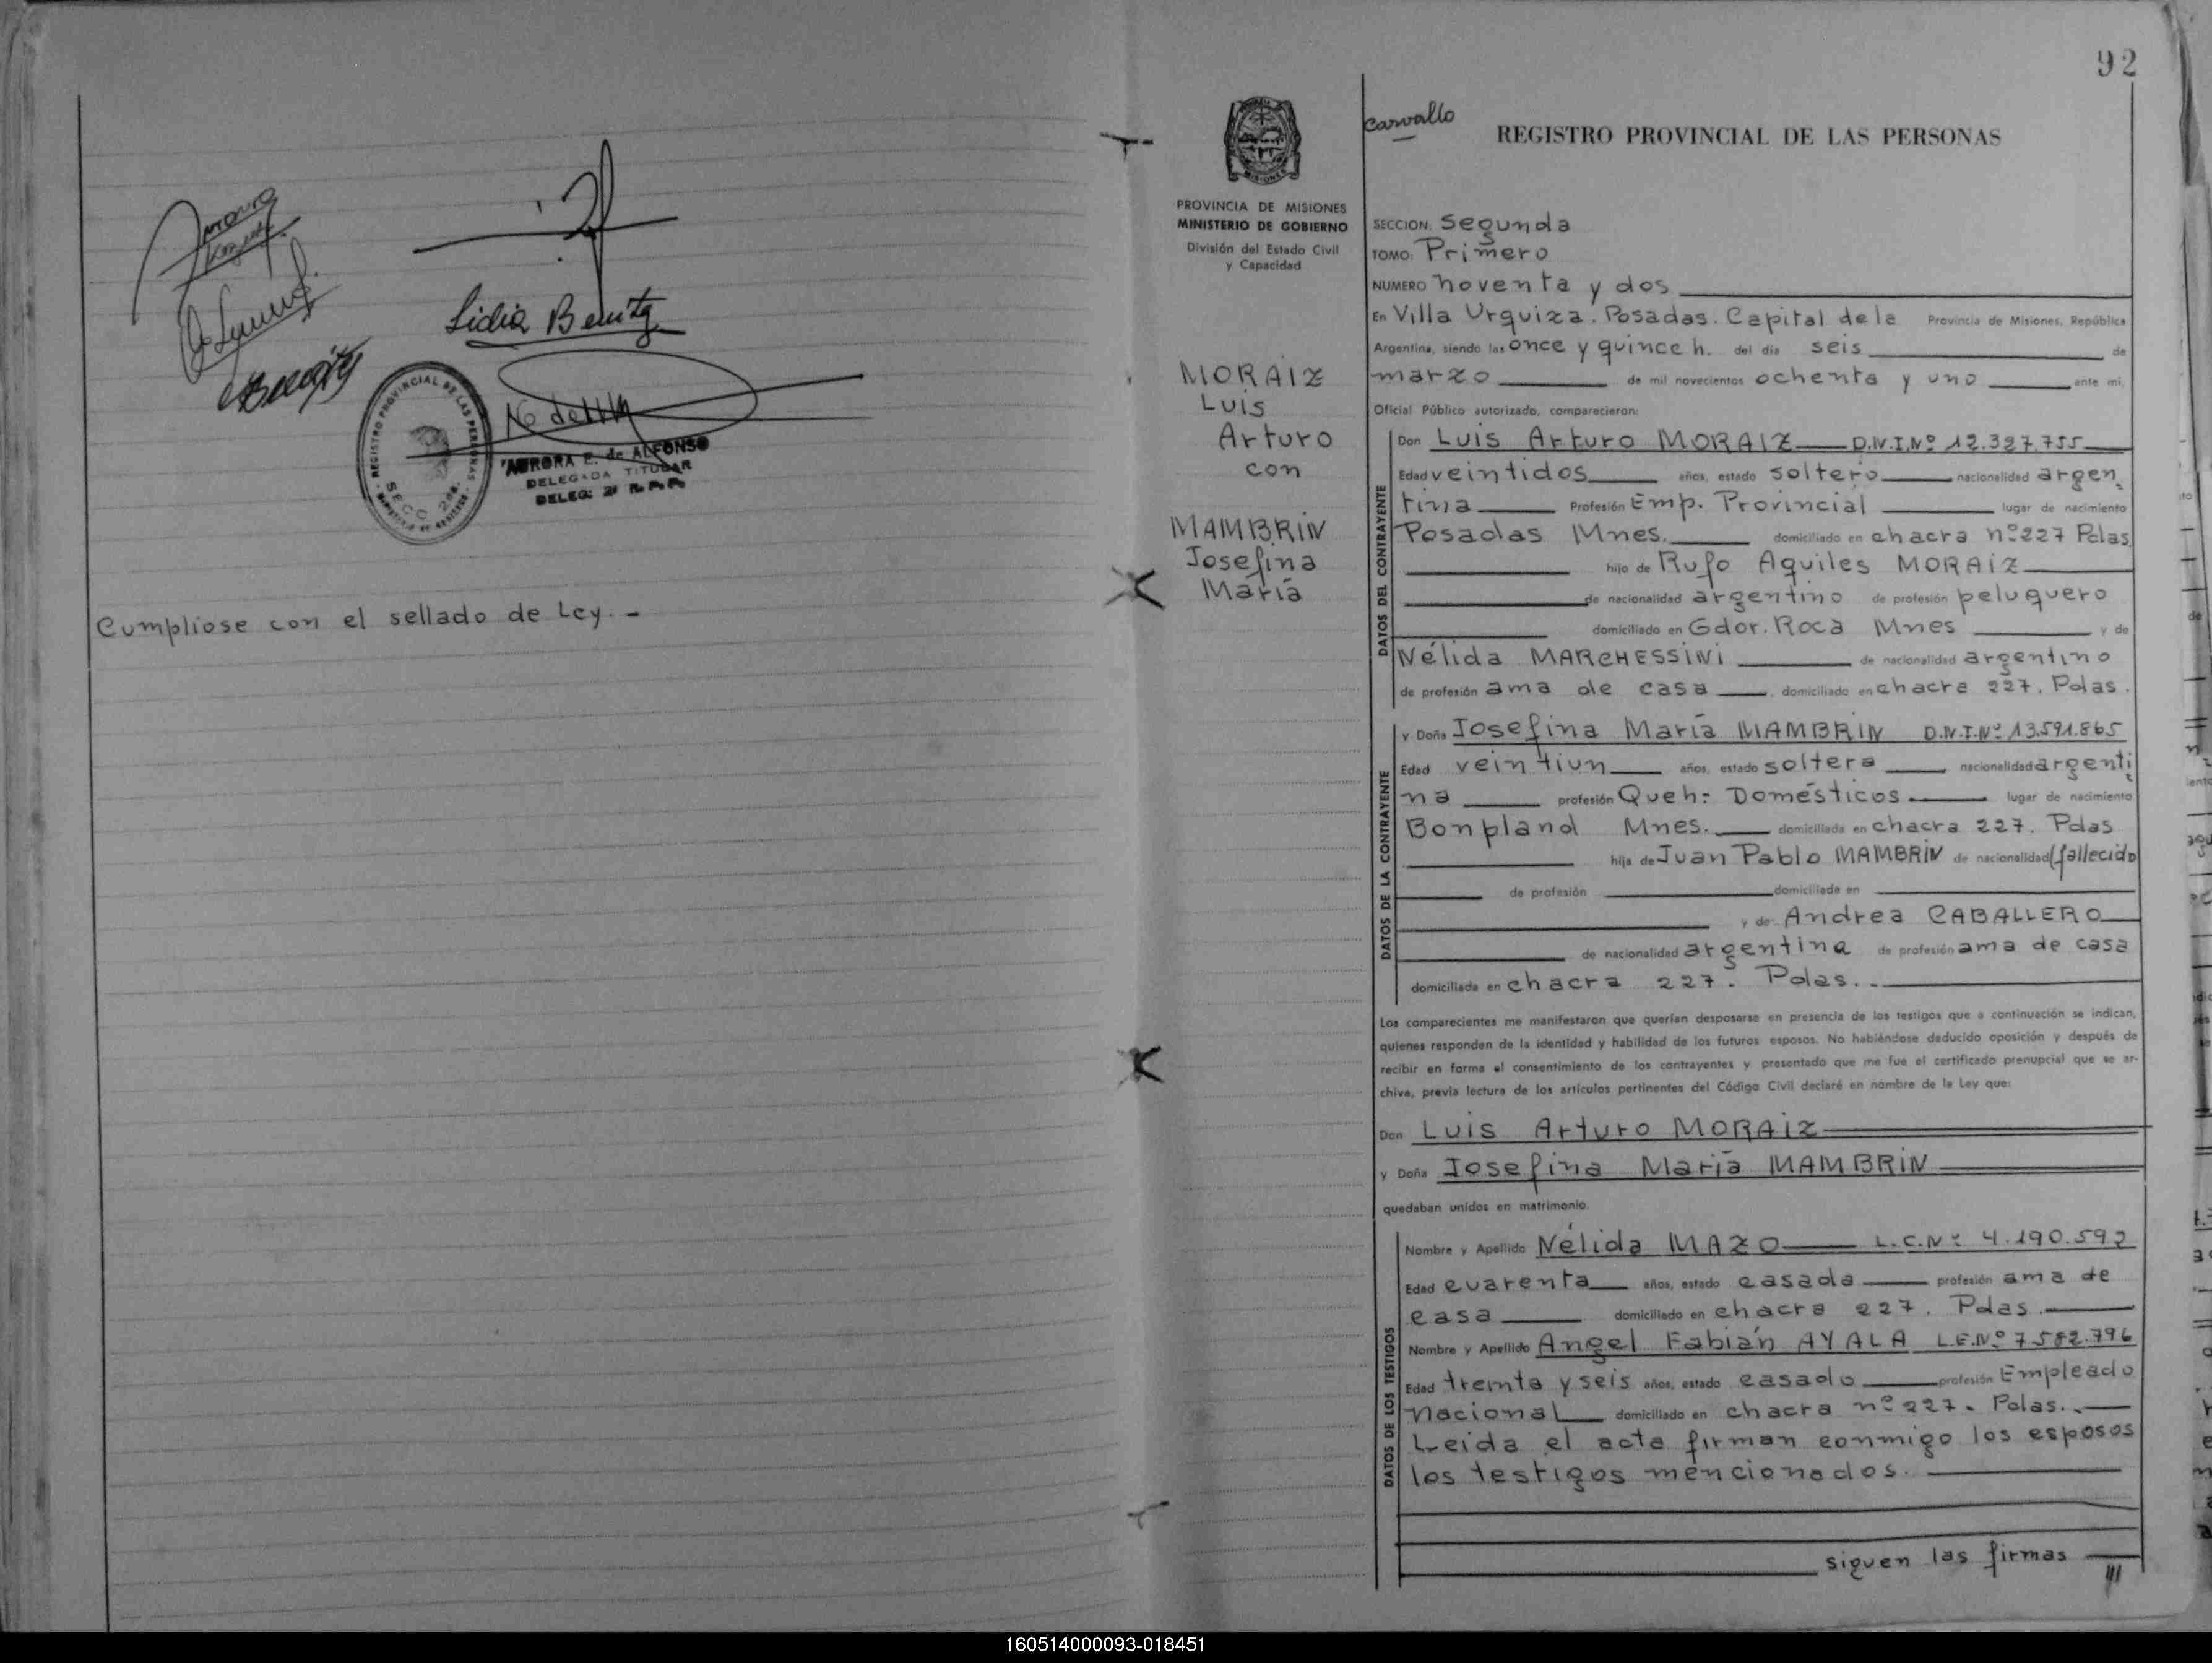 Lidia Benitez
REGISTRO PROVINCIAL DE LAS PERSONAS
SECC. 2da.
AURORA E. de ALFONSO
DELEGADA TITULAR
DELEG. 2ª R. P. P.
Cumpliose con el sellado de Ley. -
92
Carvallo
REGISTRO PROVINCIAL DE LAS PERSONAS
MISIONES
PROVINCIA DE MISIONES
MINISTERIO DE GOBIERNO
División del Estado Civil
y Capacidad
MORAIZ
Luis
Arturo
con
MAMBRIN
Josefina
María
SECCION: Segunda
TOMO: Primero
NUMERO noventa y dos
En Villa Urquiza. Posadas. Capital de la Provincia de Misiones, República
Argentina, siendo las once y quince h. del día seis de
marzo de mil novecientos ochenta y uno ante mí,
Oficial Público autorizado, comparecieron:
DATOS DEL CONTRAYENTE
Don Luis Arturo MORAIZ D.N.I.Nº 12.327.755
Edad veintidos años, estado soltero nacionalidad argen
tina Profesión Emp. Provincial lugar de nacimiento
Posadas Mnes. domiciliado en chacra nº 227 Pdas.
hijo de Rufo Aquiles MORAIZ
de nacionalidad argentino de profesión peluquero
domiciliado en Gdor. Roca Mnes y de
Nélida MARCHESSINI de nacionalidad argentino
de profesión ama de casa, domiciliado en chacra 227. Pdas.
DATOS DE LA CONTRAYENTE
y Doña Josefina María MAMBRIN D.N.I.Nº 13.591.865
Edad veintiun años, estado soltera nacionalidad argenti
na profesión Queh- Domésticos lugar de nacimiento
Bonpland Mnes. domiciliada en chacra 227. Pdas
hija de Juan Pablo MAMBRIN de nacionalidad (fallecido
de profesión domiciliado en
y de Andrea CABALLERO
de nacionalidad argentina de profesión ama de casa
domiciliada en chacra 227. Pdas.
Los comparecientes me manifestaron que querían desposarse en presencia de los testigos que a continuación se indican,
quienes responden de la identidad y habilidad de los futuros esposos. No habiéndose deducido oposición y después de
recibir en forma el consentimiento de los contrayentes y presentado que me fue el certificado prenupcial que se ar-
chiva, previa lectura de los artículos pertinentes del Código Civil declaré en nombre de la Ley que:
Don Luis Arturo MORAIZ
y Doña Josefina María MAMBRIN
quedaban unidos en matrimonio.
DATOS DE LOS TESTIGOS
Nombre y Apellido Nélida MAZO L.C.Nº 4.190.592
Edad cuarenta años, estado casada profesión ama de
casa domiciliado en chacra 227. Pdas.
Nombre y Apellido Angel Fabián AYALA L.E.Nº 7.582.796
Edad treinta y seis años, estado casado profesión Empleado
Nacional domiciliado en chacra nº 227. Pdas.
Leida el acta firman conmigo los esposos
los testigos mencionados.
siguen las firmas
160514000093-018451